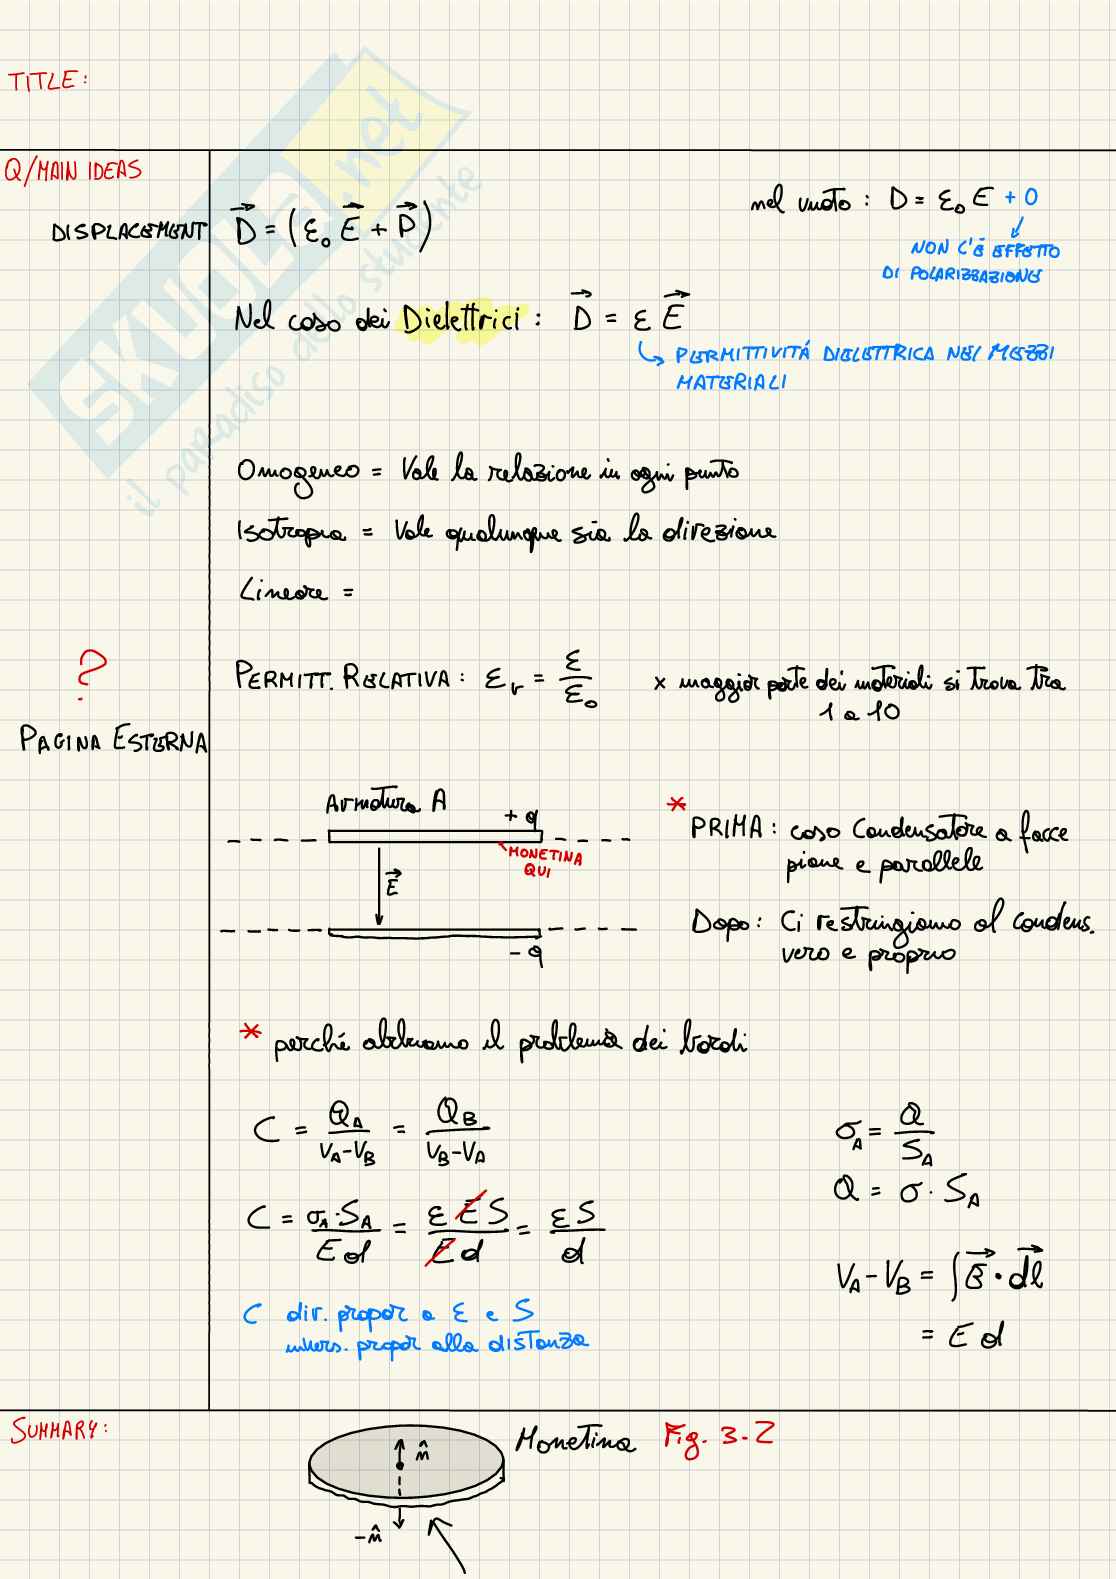 TITLE:
SKUOLA.net
il paradiso dello studente
Q/MAIN IDEAS
DISPLACEMENT D⃗ = (ε₀ E⃗ + P⃗)
nel vuoto : D = ε₀ E + 0
NON C'È EFFETTO
DI POLARIZZAZIONE
Nel caso dei Dielettrici : D⃗ = ε E⃗
↳ PERMITTIVITÁ DIELETTRICA NEI MEZZI
MATERIALI
Omogeneo = Vale la relazione in ogni punto
Isotropia = Vale qualunque sia la direzione
Lineare =
?
PAGINA ESTERNA
PERMITT. RELATIVA : εr = ε/ε₀
x maggior parte dei materiali si trova tra
1 a 10
Armatura A
+ q
MONETINA
QUI
E⃗
- q
* PRIMA : caso Condensatore a facce
piane e parallele
Dopo : Ci restringiamo al condens.
vero e proprio
* perché abbiamo il problema dei bordi
C = Q_A/(V_A-V_B) = Q_B/(V_B-V_A)
C = σ_A·S_A/(E d) = ε E S/(E d) = ε S/d
C dir. propor a ε e S
invers. propor alla distanza
σ_A = Q/S_A
Q = σ · S_A
V_A - V_B = ∫ E⃗ · dl⃗
= E d
SUMMARY:
Monetina Fig. 3.2
n̂
-n̂